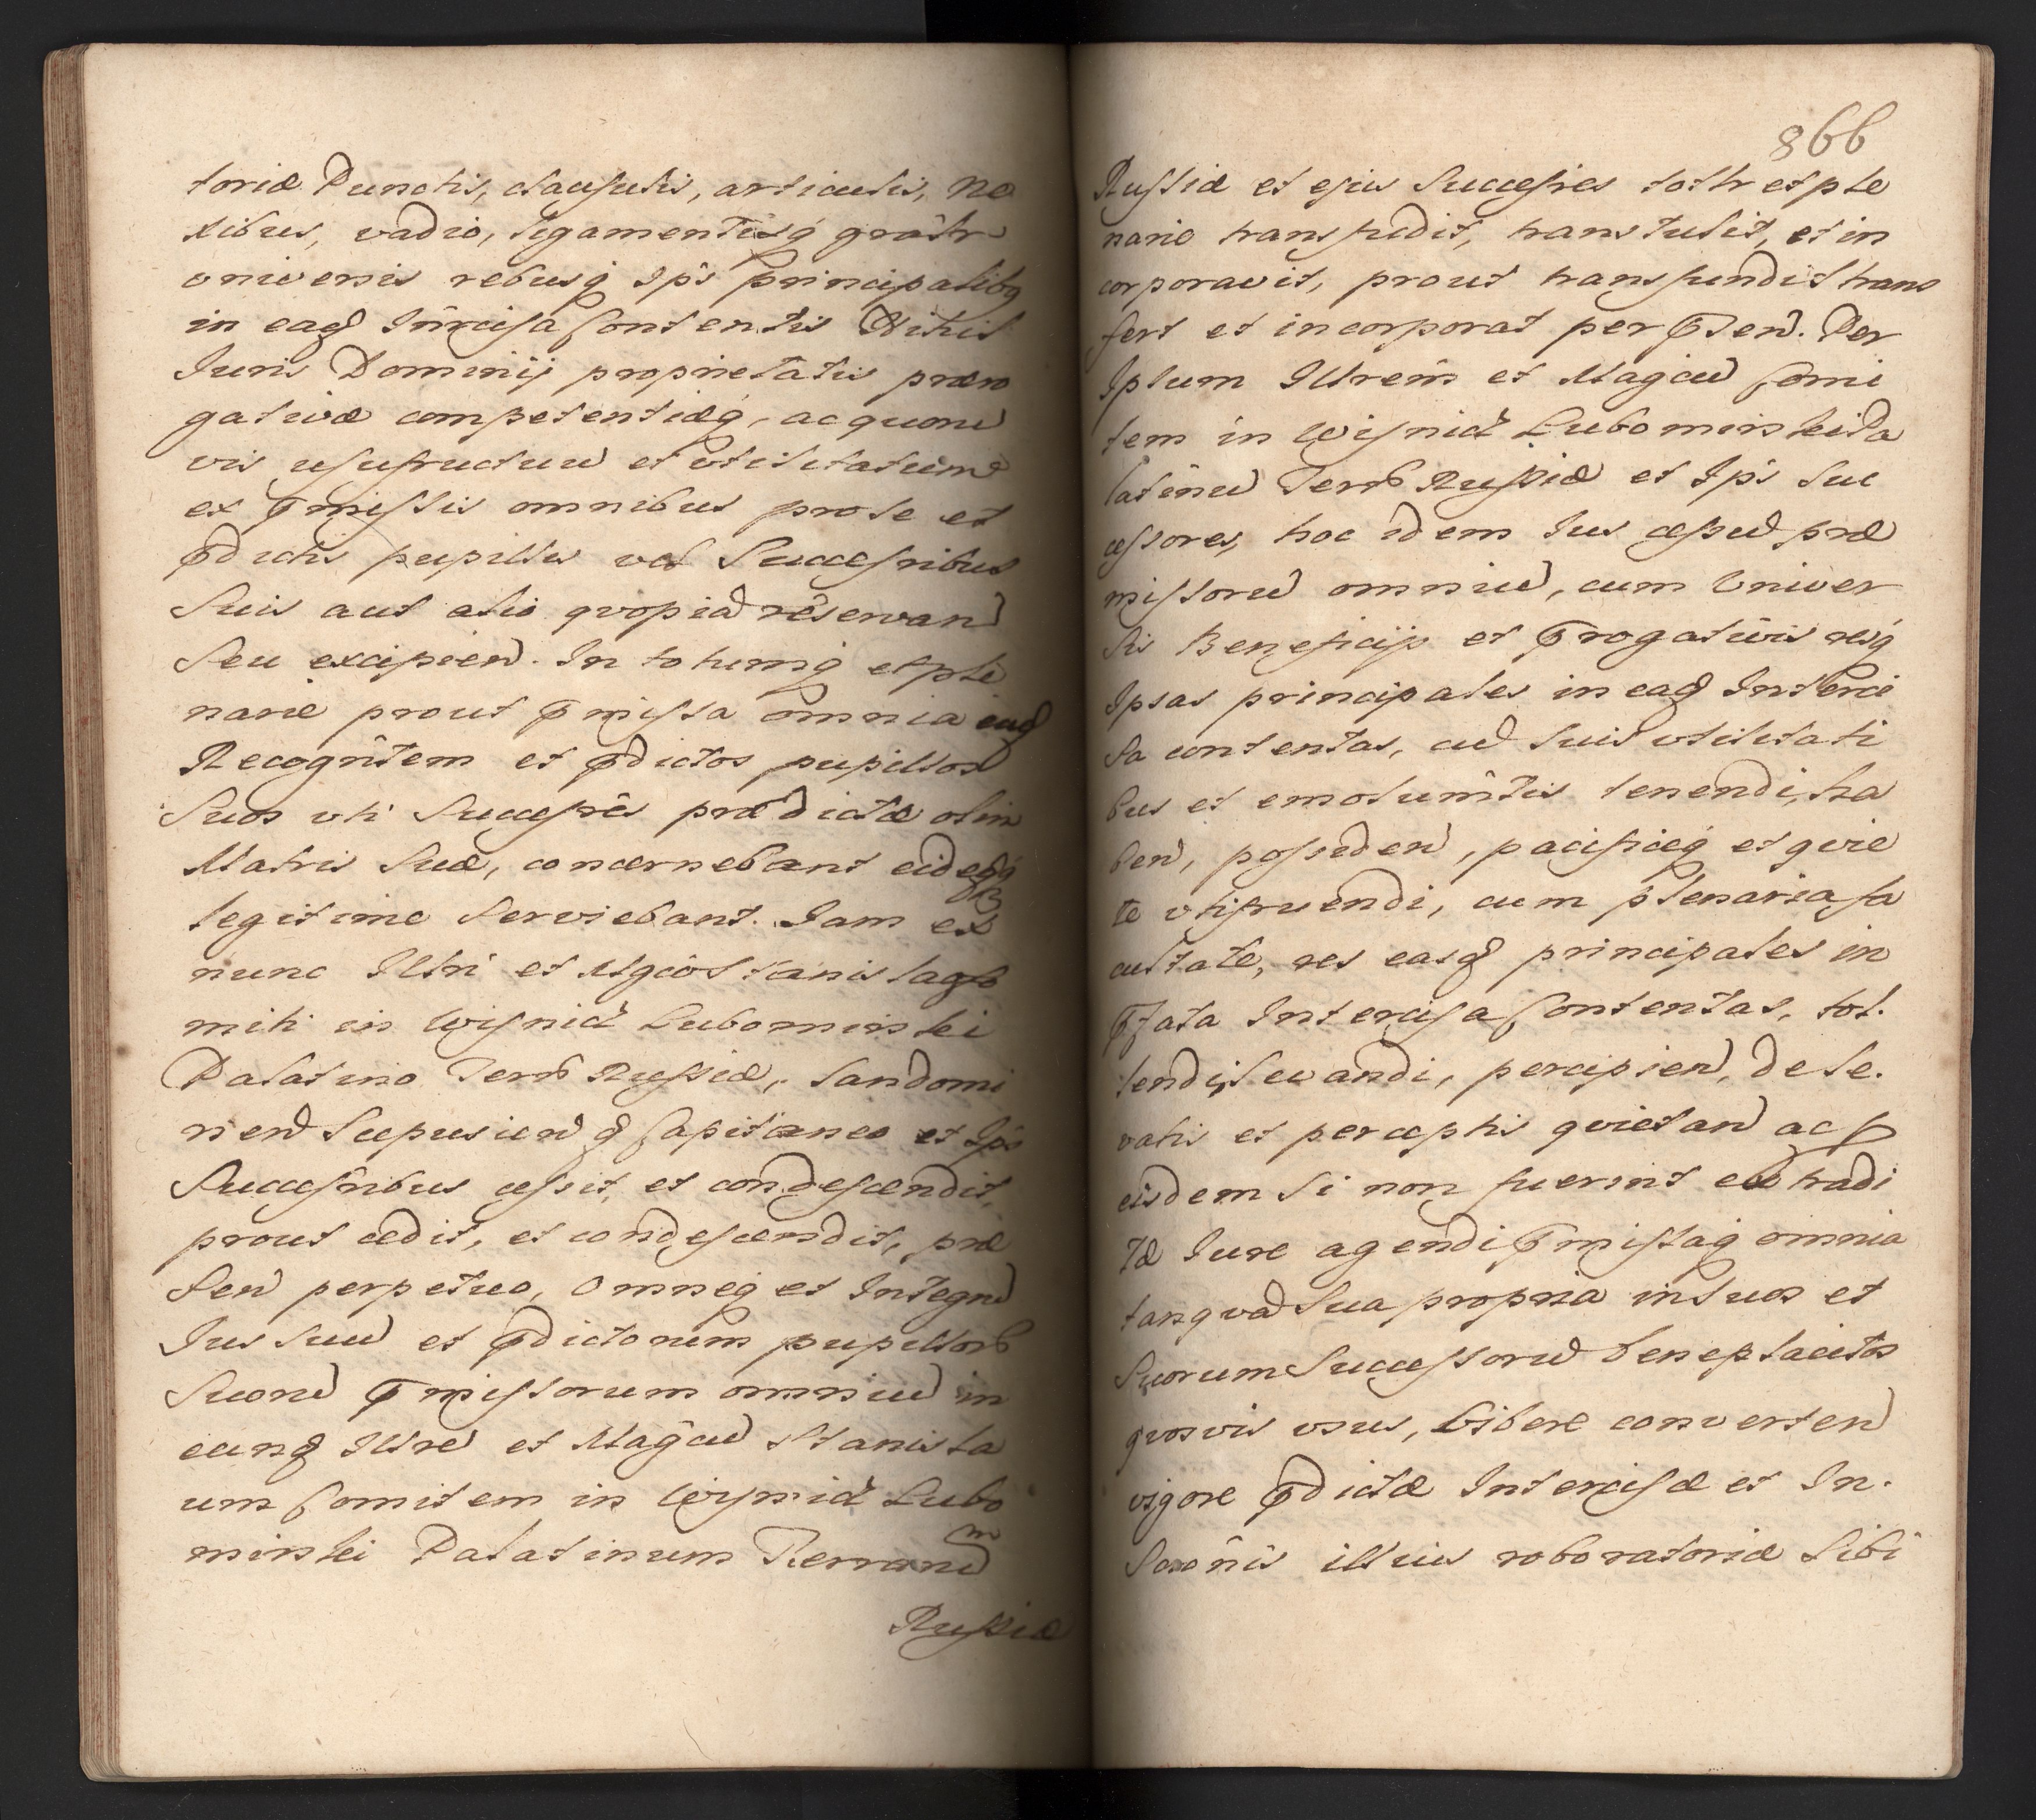 toriæ Punctis, clausulis, articulis, Ne
xibus, vadio, ligamentisq́ gnâtr
universis rebusq́ Ipŝ principalibq
in eaḍ Inrcisa Contentis Nihil
Iuris Dominij proprietatis præro
gativæ competentiæq́, ac quorū
vis usufructuū et utilitatum
ex p̄missis omnibus pro se et
p̄dictis pupillis vel Succeſsribus
Suis aut alio qvopiā reservan
Seu excipien. In totumq́ et ple
narie prout p̄missa omnia eūd
Recognitem et p̄dictos pupillos
Suos uti Succeſsrēs prædictæ olim
Matris Suæ, concernebant eidēq́
legitime Serviebant. Iam ex
nunc Illrī et Mgcō Stanislao Co
miti in Wiſnicz Lubomirski
Palatino Terr Ruſsiæ, Sandomi
rien Scepusien q́ Capitaneo et Ips
Succeſsribus ceſsit, et condeſcendit,
prout cedit, et condeſcendit, præ
ſen perpetuo, Omneq́ et Integrū
Ius Suū et p̄dictorum pupillor
Suorū p̄miſsorum omniū in
eunḍ Illrē et Magcū Stanisla
um Comitem in Wiſnicz Lubo
mirski Palatinum Terrarū
Ruſsiæ
866
Ruſsiæ et ejus Succeſsres totlr et ple
narie transfudit, transtulit, et in
corporavit, prout transfundit trans
fert et incorporat per p̄sen. Per
Ipsum Illrem et Magcū Comi
tem in Wiſnicz Lubomirski Pa
latinū Terr Ruſsiæ et Ips̄ Suc
ceſsores, hoc idem Ius ceſsū præ
miſsorū omniū, cum Univer
sis Beneficijs et p̄rogativis resq́
Ipsas principales in eaḍ Interci
sa contentas, cū Suis utilitati
bus et emolumtis tenendi, ha
ben, poſsiden, pacificeq́ et qvie
te utifruendi, cum plenaria fa
cultate, res easḍ principales in
p̄fata Interciſa Contentas, tol
lendi, levandi, percipien, de le
vatis et perceptis qvietan ac p
eisdem Si non fuerint extradi
tæ Iure agendi p̄miſsaq́ omnia
tanqvā Sua propria in Suos et
Suorum Succeſsorū beneplacitos
qvosvis usus, libere converten
vigore p̄dictæ Interciſæ et In
scr̄onis illius roboratoriæ Sibi